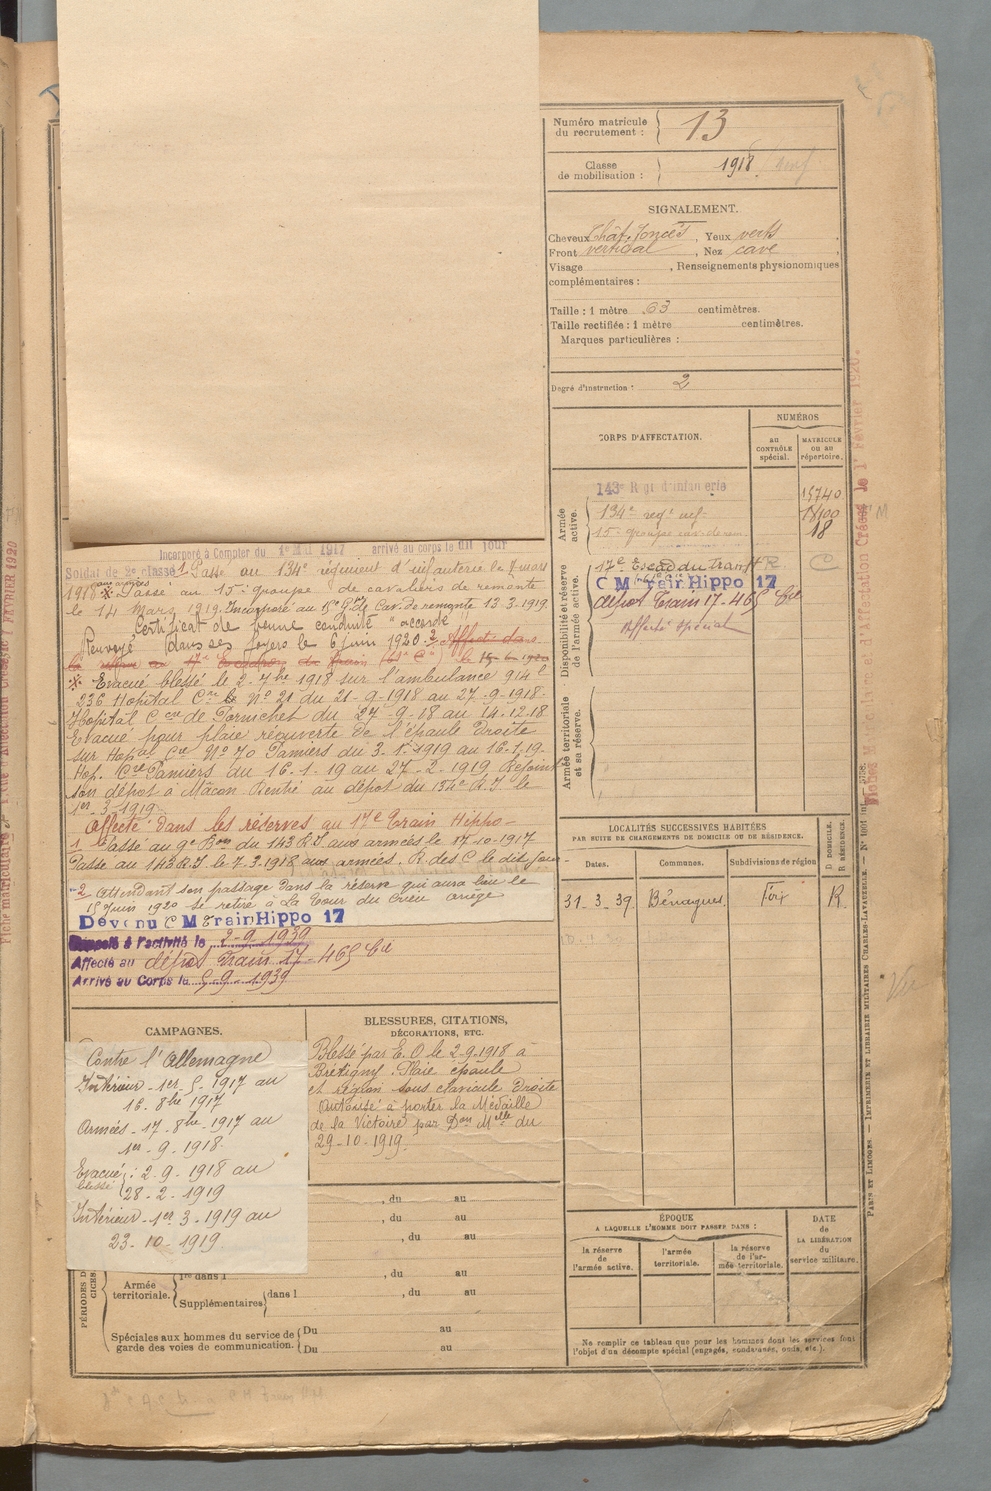 Numéro matricule
du recrutement : 13
Classe
de mobilisation : 1918
SIGNALEMENT.
Cheveux Chât. foncés, Yeux verts
Front vertical, Nez cave
Visage , Renseignements physionomiques
complémentaires :
Taille : 1 mètre 63 centimètres.
Taille rectifiée : 1 mètre centimètres.
Marques particulières :
Degré d'instruction : 2
CORPS D'AFFECTATION.
NUMÉROS
au
CONTRÔLE
spécial.
MATRICULE
ou au
répertoire.
Armée
active.
143e Rgt d'infanterie 15740
134e regt inf. 18100
15e groupe cav. de rem. 18
Disponibilité et réserve
de l'armée active.
17e Escad du Train R C
C M Train Hippo 17
dépôt Train 17 - 465 Cie
Affecté spécial
Armée territoriale
et sa réserve.
Incorporé à Compter du 1er Mai 1917 arrivé au corps le dit jour
Soldat de 2e classe 1 Passé au 134e régiment d'infanterie le 8 mars
1918 aux armées Passé au 15e groupe de cavaliers de remonte
le 14 Mars 1919. Incorporé au 15e Gr de Cav. de remonte 13.3.1919
Certificat de bonne conduite "accordé"
Renvoyé dans ses foyers le 6 juin 1920. 2 Affecté dans
la réserve au 17e Escadron du Train le 15-6-1920
Evacué blessé le 2-7bre 1918 sur l'ambulance 9/4
236 Hopital Cre N° 21 du 21-9-1918 au 27-9-1918.
Hopital Cre de Pornichet du 27-9-18 au 14.12.18
Evacué pour plaie réouverte de l'épaule Droite
sur Hopal Cre N° 70 Pamiers du 3-1-1919 au 16.1.19
Hop. Cre Pamiers du 16-1-19 au 27-2-1919 Rejoint
son dépôt à Mâcon. Rentré au dépôt du 134e R.I le
1er-3-1919.
Affecté dans les réserves au 17e Train Hippo -
1 Passé au 9e Bon du 143 R.I aux armées le 17-10-1917
Passé au 143 R.I le 7.3.1918 aux armées. R. des C. le dit jour
2 Attendant son passage dans la réserve qui aura lieu le
15 juin 1920 se retire à La Tour du Crieu Ariège
Devenu C M Train Hippo 17
Rappelé à l'activité le 2-9-1939
Affecté au dépôt Train 17 - 465 Cie
Arrivé au Corps le 5-9-1939
LOCALITÉS SUCCESSIVES HABITÉES
PAR SUITE DE CHANGEMENTS DE DOMICILE OU DE RÉSIDENCE.
Dates.
Communes.
Subdivisions de région
D DOMICILE.
R RÉSIDENCE.
31-3-39 Bénagues Foix R
CAMPAGNES.
Contre l'Allemagne
Intérieur - 1er 5. 1917 au
16. 8bre 1917
Armées - 17-8bre-1917 au
1er-9-1918
Evacué : 2-9-1918 au
blessé 28-2-1919
Intérieur - 1er 3-1919 au
23-10-1919
BLESSURES, CITATIONS,
DÉCORATIONS, ETC.
Blessé par E.O le 2-9-1918 à
Brétigny. Plaie épaule
et région sous clavicule Droite
Autorisé à porter la Médaille
de la Victoire par Don Melle du
29-10-1919
, du au
, du au
, du au
1re dans l , du au
Armée
territoriale.
Supplémentaires dans l , du au
Spéciales aux hommes du service de
garde des voies de communication.
Du au
Du au
ÉPOQUE
A LAQUELLE L'HOMME DOIT PASSER DANS :
la réserve
de
l'armée active.
l'armée
territoriale.
la réserve
de l'ar-
mée territoriale.
DATE
de
LA LIBÉRATION
du
service militaire.
Ne remplir ce tableau que pour les hommes dont les services font
l'objet d'un décompte spécial (engagés, condamnés, omis, etc.).
PARIS ET LIMOGES. — IMPRIMERIE ET LIBRAIRIE MILITAIRES CHARLES-LAVAUZELLE.
Vu